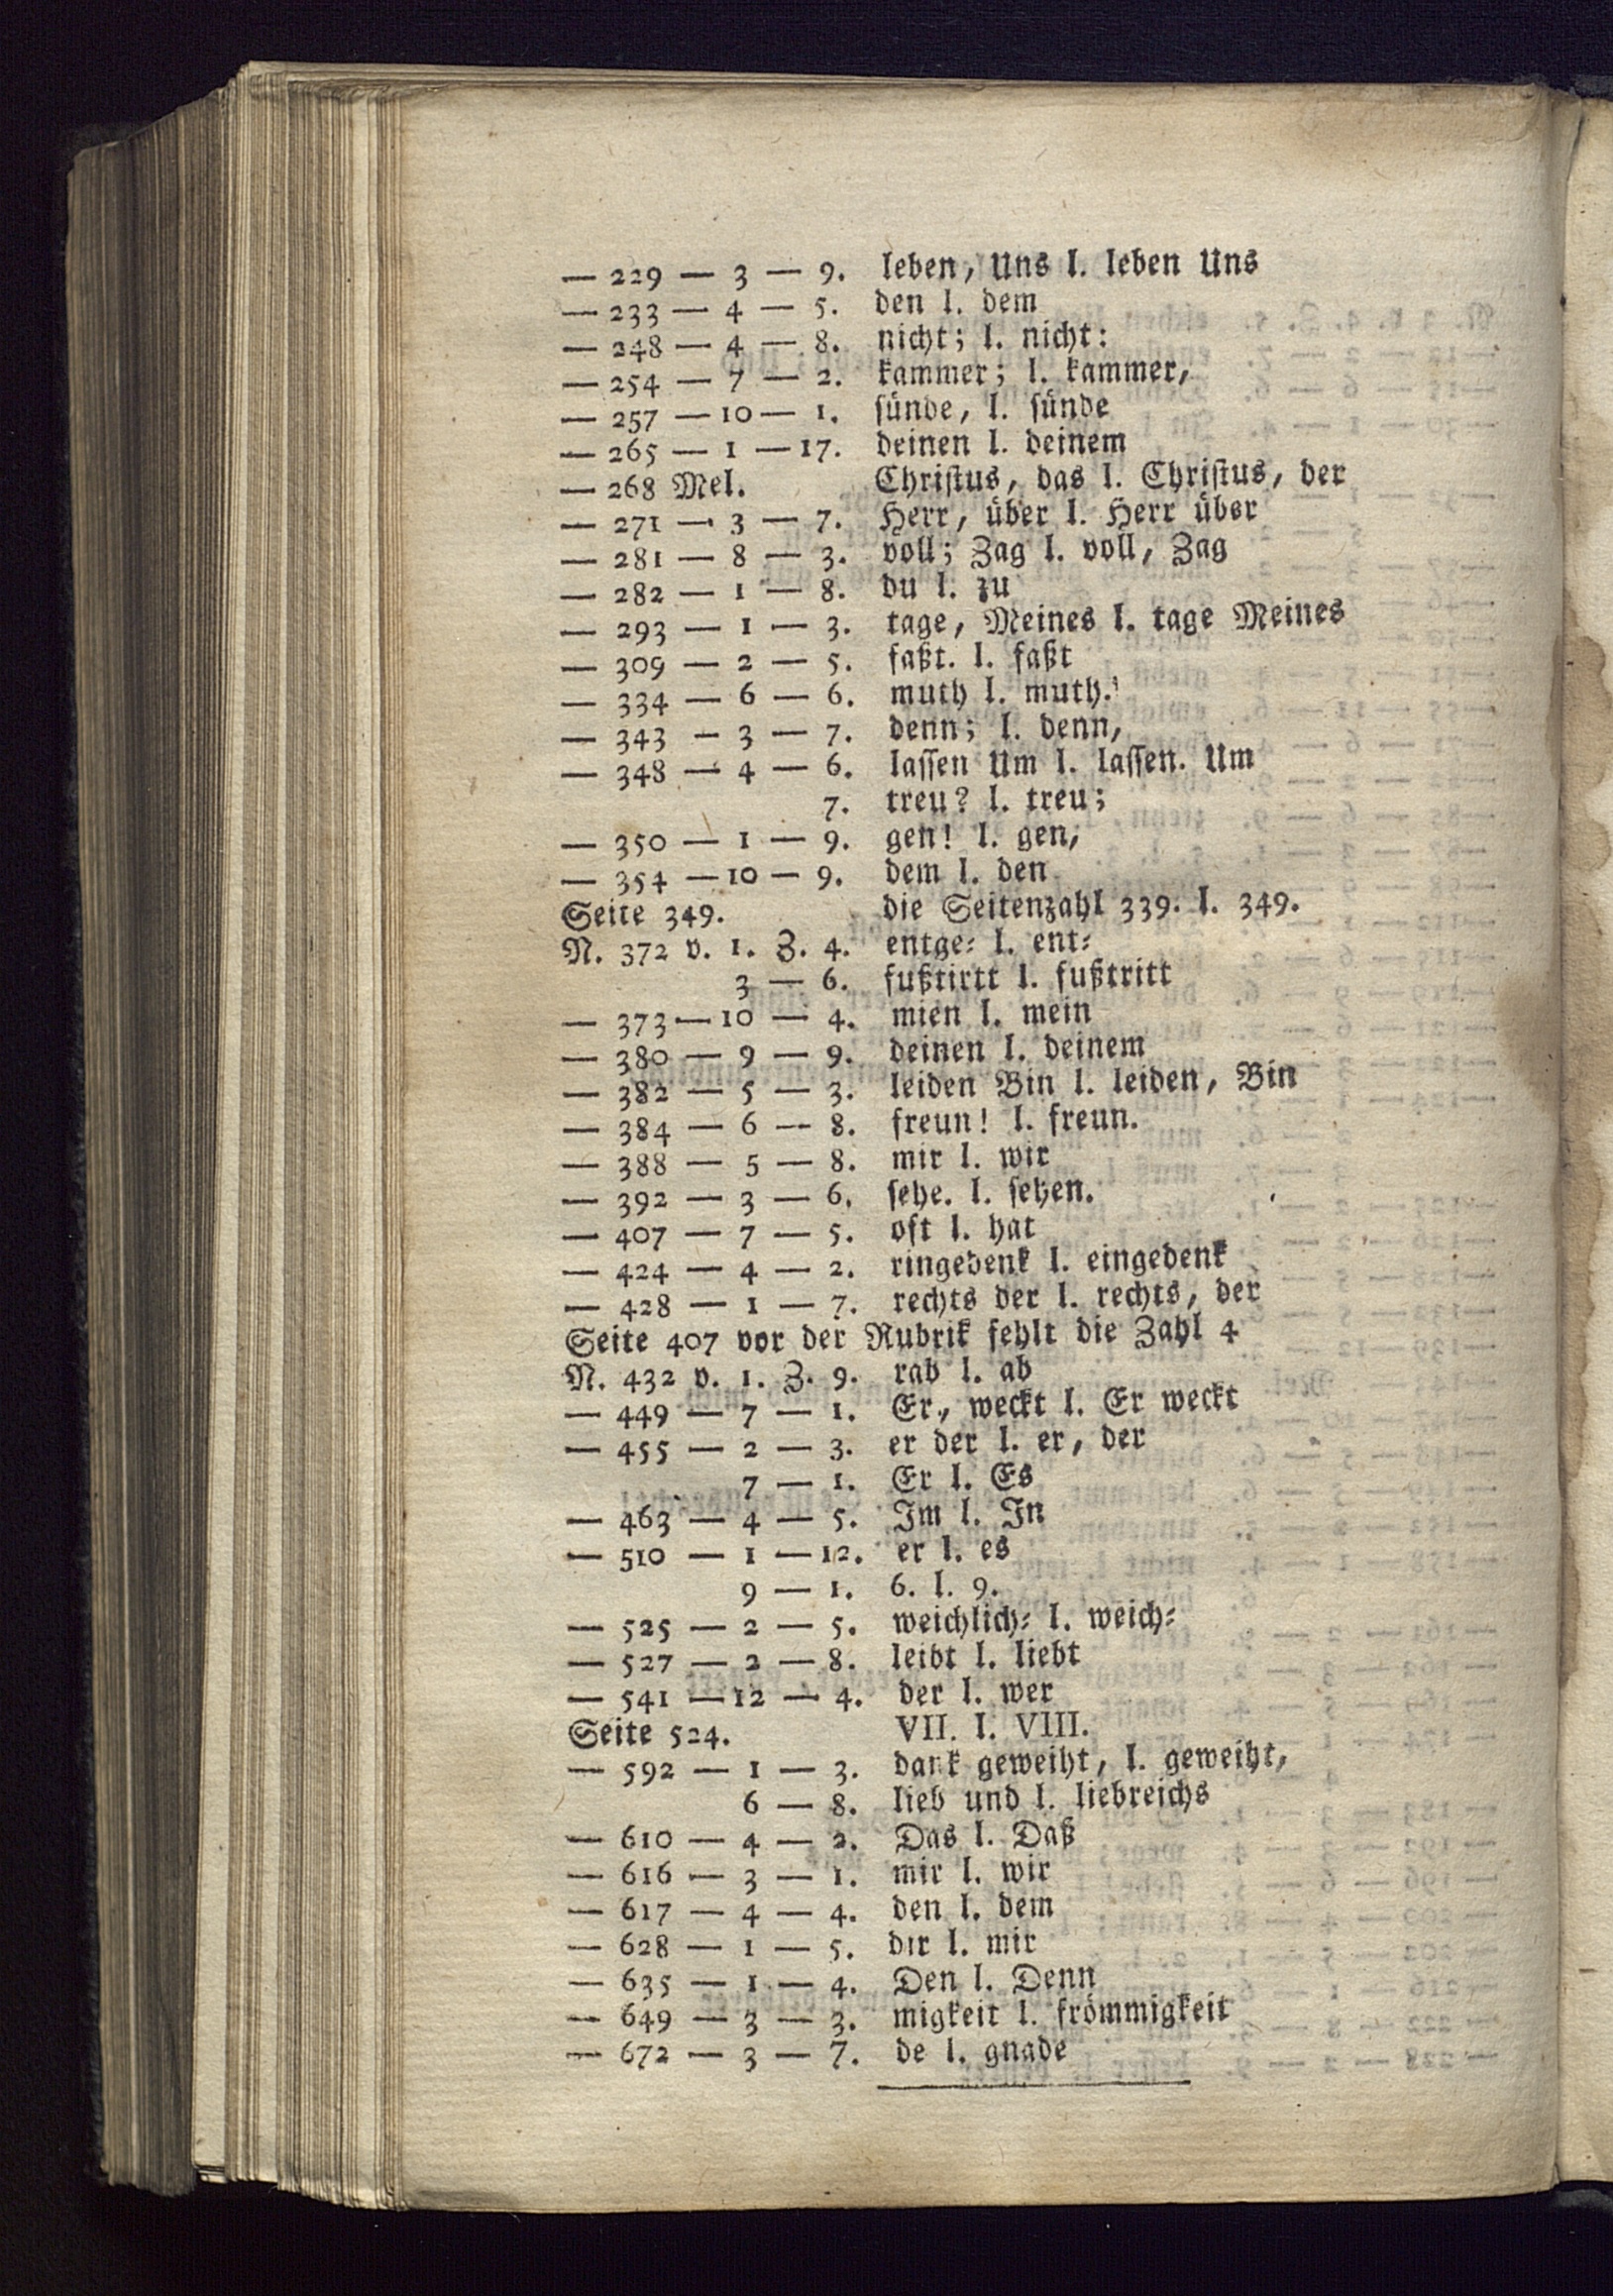 — 229 — 3 — 9. leben, Uns l. leben Uns
— 233 — 4 — 5. den l. dem
— 248 — 4 — 8. nicht; l. nicht:
— 254 — 7 — 2. kammer; l. kammer,
— 257 — 10 — 1. sünde, l. sünde
— 265 — 1 — 17. deinen l. deinem
— 268 Mel. Christus, das l. Christus, der
— 271 — 3 — 7. Herr, über l. Herr über
— 281 — 8 — 3. voll; Zag l. voll, Zag
— 282 — 1 — 8. du l. zu
— 293 — 1 — 3. tage, Meines l. tage Meines
— 309 — 2 — 5. faßt. l. faßt
— 334 — 6 — 6. muth l. muth.
— 343 — 3 — 7. denn; l. denn,
— 348 — 4 — 6. lassen Um l. lassen. Um
7. treu? l. treu;
— 350 — 1 — 9. gen! l. gen,
— 354 — 10 — 9. dem l. den
Seite 349. die Seitenzahl 339. l. 349.
N. 372 v. 1. Z. 4. entge⸗ l. ent⸗
3 — 6. fußtirtt l. fußtritt
— 373 — 10 — 4. mien l. mein
— 380 — 9 — 9. deinen l. deinem
— 382 — 5 — 3. leiden Bin l. leiden, Bin
— 384 — 6 — 8. freun! l. freun.
— 388 — 5 — 8. mir l. wir
— 392 — 3 — 6. sehe. l. sehen.
— 407 — 7 — 5. oft l. hat
— 424 — 4 — 2. ringedenk l. eingedenk
— 428 — 1 — 7. rechts der l. rechts, der
Seite 407 vor der Rubrik fehlt die Zahl 4
N. 432 v. 1. Z. 9. rab l. ab
— 449 — 7 — 1. Er, weckt l. Er weckt
— 455 — 2 — 3. er der l. er, der
7 — 1. Er l. Es
— 463 — 4 — 5. Im l. In
— 510 — 1 — 12. er l. es
9 — 1. 6. l. 9.
— 525 — 2 — 5. weichlich⸗ l. weich⸗
— 527 — 2 — 8. leibt l. liebt
— 541 — 12 — 4. der l. wer
Seite 524. VII. l. VIII.
— 592 — 1 — 3. dank geweiht, l. geweiht,
6 — 8. lieb und l. liebreichs
— 610 — 4 — 2. Das l. Daß
— 616 — 3 — 1. mir l. wir
— 617 — 4 — 4. den l. dem
— 628 — 1 — 5. dir l. mir
— 635 — 1 — 4. Den l. Denn
— 649 — 3 — 3. migkeit l. frömmigkeit
— 672 — 3 — 7. de l. gnade